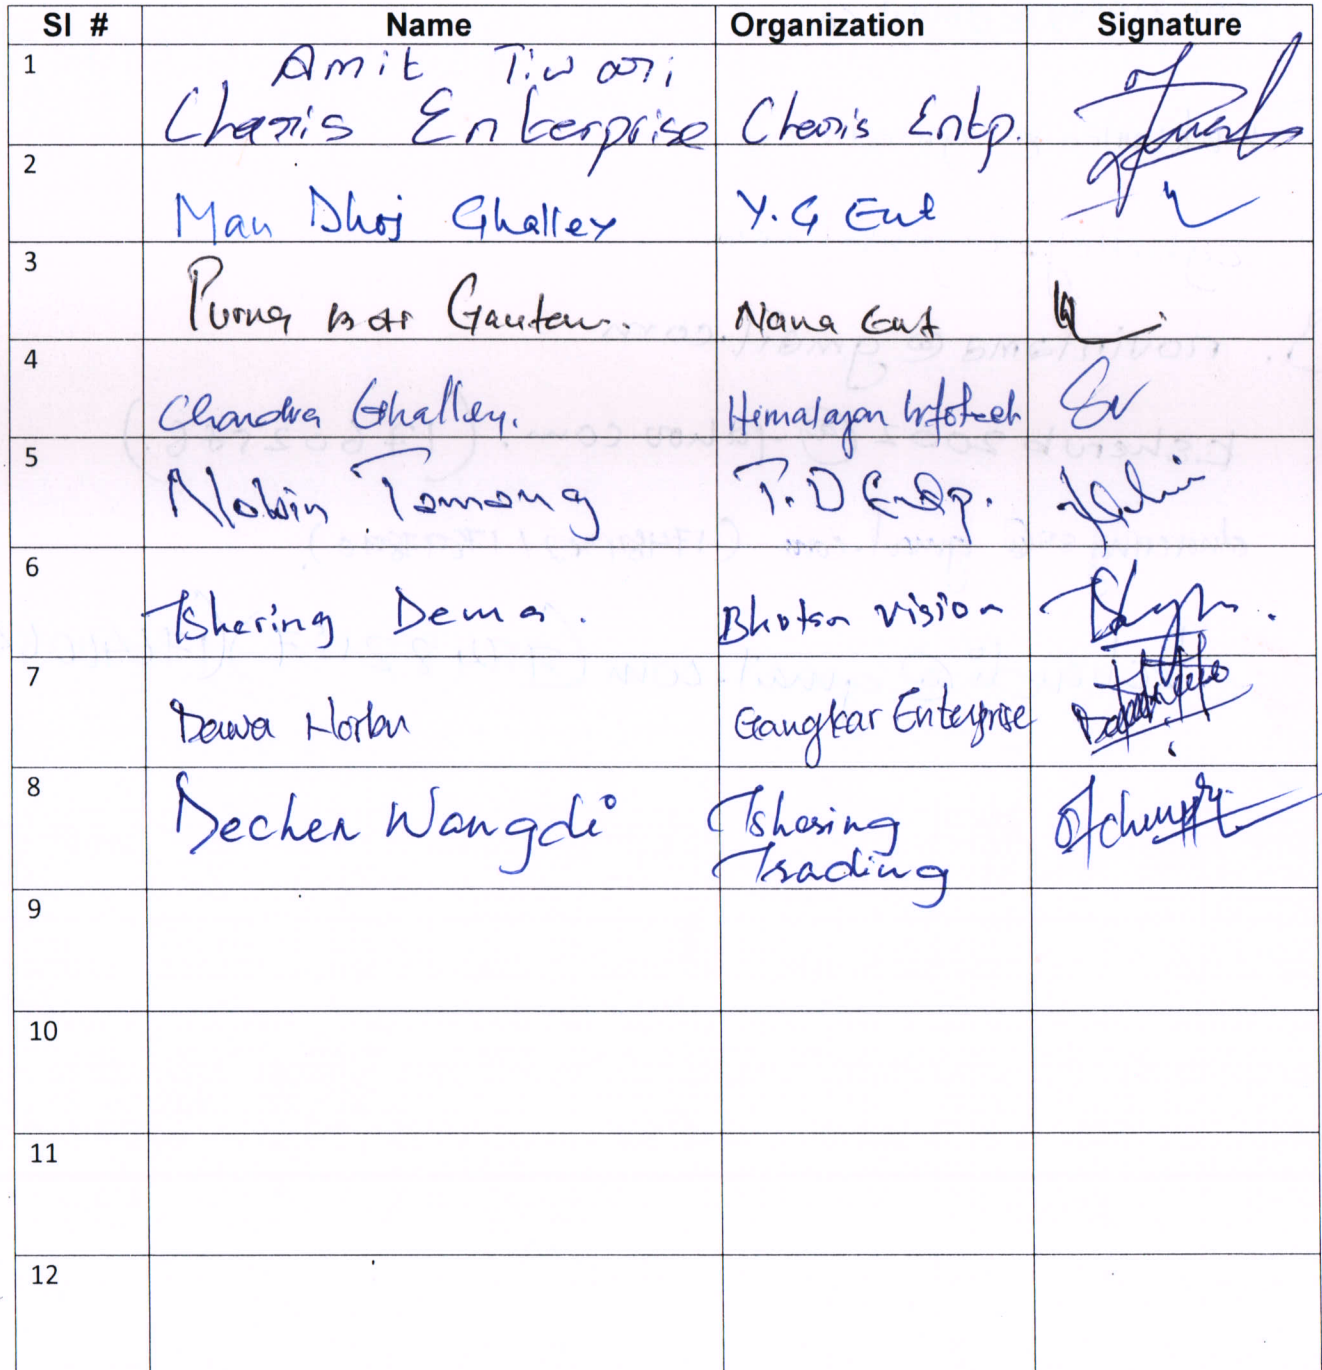 Sl # Name Organization Signature
1 Amit Tiwari
Cheris Enterprise Cheris Entp.
2
Man Dhoj Ghalley Y.G Ent
3
Purna Gautam. Nana Ent
4
Chandra Ghalley. Himalayan Infotech
5
Nobin Tamang T.D Entp.
6
Tshering Dema. Bhutan vision
7
Dawa Norbu Gangkar Enterprise
8
Dechen Wangdi Tshering
Trading
9
10
11
12